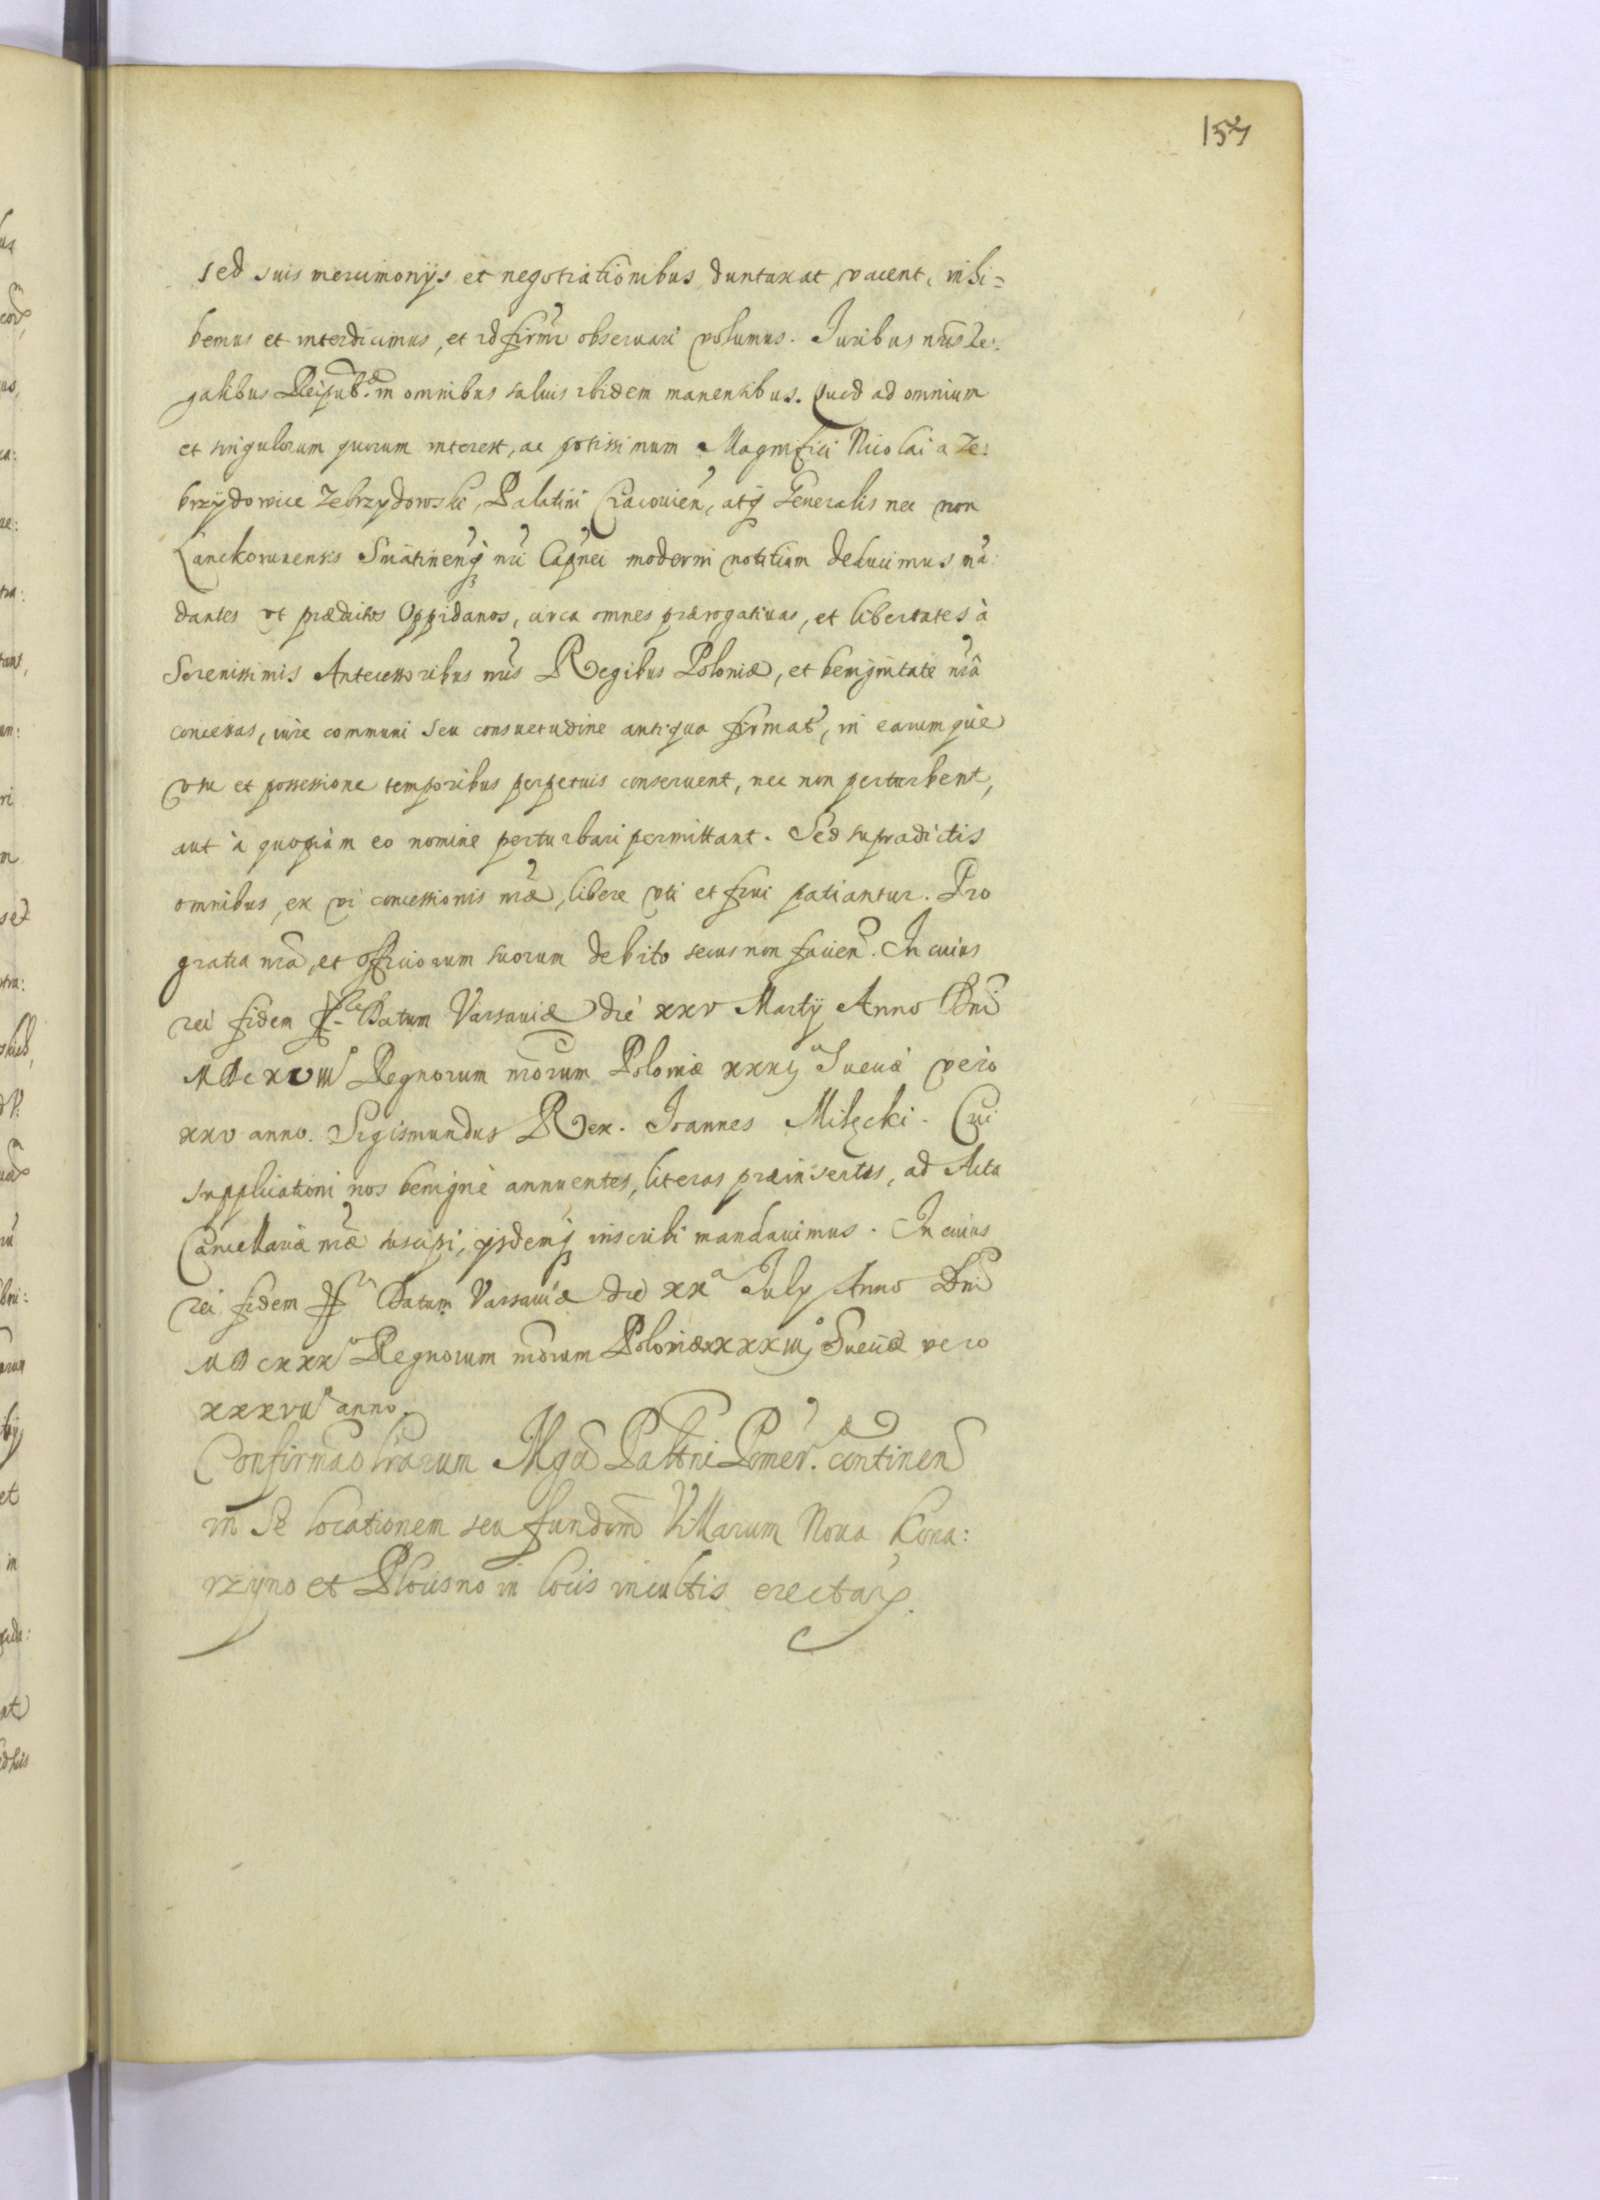 157
sed suis mercimonijs et negotiationibus duntaxat vacent, inhi=
bemus et interdicimus, et id firmr observari volumus. Iuribus nris Re:
galibus Reipub. in omnibus salvis ibidem manentibus. Quod ad omnium
et singulorum quorum interest, ac potissimum Magnifici Nicolai a Ze:
brzydowice Zebrzydowski, Palatini Cracovien, atq Generalis nec non
Lanckorunensis Sniatinenq nri Capnei moderni notitiam deducimus mã:
dantes vt prædictos Oppidanos, circa omnes prærogatiuas, et libertates à
Serenissimis Antecessoribus nris Regibus Poloniæ, et benignitate nrâ
concessas, iure communi seu consuetudine antiqua firmat, in earumque
vsu et possessione temporibus perpetuis conseruent, nec non perturbent,
aut à quopiam eo nomine perturbari permittant. Sed supradictis
omnibus, ex vi concessionis nræ, libere vti et frui patiantur. Pro
gratia nra, et officiorum suorum debito secus non facien. In cuius
rei fidem Datum Varsauiæ die xxv Martij Anno Dni
MDcxviii Regnorum nrorum Poloniæ xxxi Sueciæ vero
xxv anno. Sigismundus Rex. Ioannes Milęcki. Cui
supplicationi nos benignè annuentes, literas præinsertas, ad Acta
Cancellariæ nræ suscipi, ijsdemq inscribi mandauimus. In cuius
rei fidem Datum Varsauiæ die xxa July Anno Dni
MDcxxx Regnorum nrorum Poloniæ xxxxiij Sueciæ vero
xxxvii anno.
Confirmao lrarum Mgci Paltni Pomer. continen
in se locationem seu fundom Villarum Noua Kona:
rzyno et Plocisno in locis incultis erectarz.